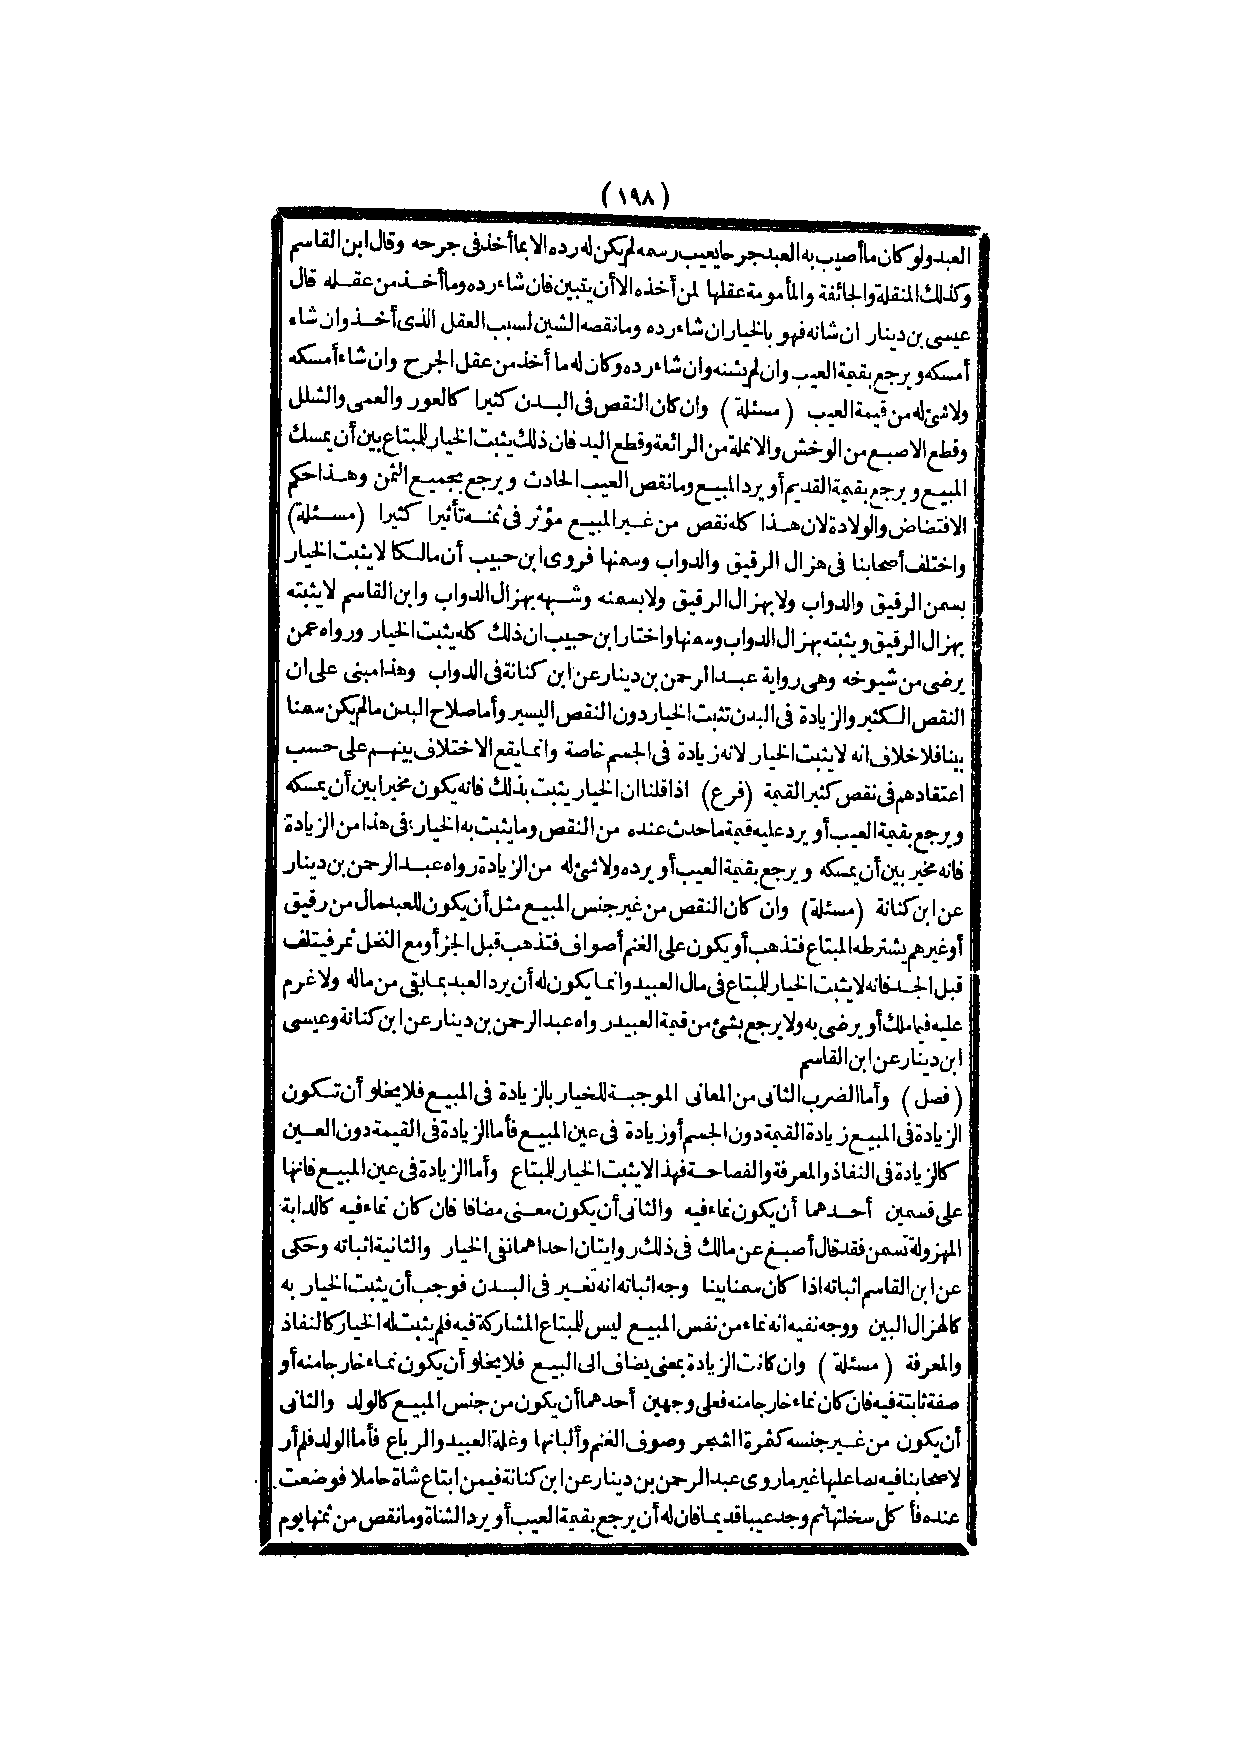 (١٩٨)
العبد ولو كان ما أصيب به العبد جرحا يعيب رسمه لم يكن له رده الا بما أخذ فى جرحه وقال ابن القاسم
وكذلك المنقلة والجائفة والمأمومة عقلها لمن أخذه الا أن يتبين فان شاء رده وما أخذ من عقله قال
عيسى بن دينار ان شانه فهو بالخيار ان شاء رده وما نقصه الشين لسبب العقل الذى أخذ وان شاء
أمسكه ويرجع بقيمة العيب وان لم يشنه وان شاء رده وكان له ما أخذ من عقل الجرح وان شاء أمسكه
ولا شئ له من قيمة العيب (مسئلة) وان كان النقص فى البدن كثيرا كالعور والعمى والشلل
وقطع الاصبع من الوخش والانملة من الرائعة وقطع اليد فان ذلك يثبت الخيار للمبتاع بين أن يمسك
المبيع ويرجع بقيمة القديم أو يرد المبيع وما نقص العيب الحادث ويرجع بجميع الثمن وهذا حكم
الافتضاض والولادة لان هذا كله نقص من غير المبيع مؤثر فى ثمنه تأثيرا كثيرا (مسئلة)
واختلف أصحابنا فى هزال الرقيق والدواب وسمنها فروى ابن حبيب أن مالكا لا يثبت الخيار
بسمن الرقيق والدواب ولا بهزال الرقيق ولا بسمنه وشبهه بهزال الدواب وابن القاسم لا يثبته
بهزال الرقيق ويثبته بهزال الدواب وسمنها واختار ابن حبيب ان ذلك كله يثبت الخيار ورواه عمن
يرضى من شيوخه وهى رواية عبد الرحمن بن دينار عن ابن كنانة فى الدواب وهذا مبنى على ان
النقص الكثير والزيادة فى البدن تثبت الخيار دون النقص اليسير وأما صلاح البدن ما لم يكن سمنا
بينا فلا خلاف انه لا يثبت الخيار لانه زيادة فى الجسم خاصة وانما يقع الاختلاف بينهم على حسب
اعتقادهم فى نقص كثير القيمة (فرع) اذا قلنا ان الخيار يثبت بذلك فانه يكون مخيرا بين أن يمسكه
ويرجع بقيمة العيب أو يرد عليه قيمة ما حدث عنده من النقص وما يثبت به الخيار فى هذا من الزيادة
فانه مخير بين أن يمسكه ويرجع بقيمة العيب أو يرده ولا شئ له من الزيادة رواه عبد الرحمن بن دينار
عن ابن كنانة (مسئلة) وان كان النقص من غير جنس المبيع مثل أن يكون للعبد مال من رقيق
أو غيرهم يشترطه المبتاع فتذهب أو يكون على الغنم أصواف فتذهب قبل الجز أو مع النخل ثمر فيتلف
قبل الجد فانه لا يثبت الخيار للمبتاع فى مال العبيد وانما يكون له أن يرد العبد بما بقى من ماله ولا غرم
عليه فيما هلك أو يرضى به ولا يرجع بشئ من قيمة العبيد رواه عبد الرحمن بن دينار عن ابن كنانة وعيسى
ابن دينار عن ابن القاسم
(فصل) وأما الضرب الثانى من المعانى الموجبة للخيار بالزيادة فى المبيع فلا يخلو أن تكون
الزيادة فى المبيع زيادة القيمة دون الجسم أو زيادة فى عين المبيع فأما الزيادة فى القيمة دون العين
كالزيادة فى النفاذ والمعرفة والفصاحة فهذا لا يثبت الخيار للمبتاع وأما الزيادة فى عين المبيع فانها
على قسمين أحدهما أن يكون نماء فيه والثانى أن يكون معنى مضافا فان كان نماء فيه كالدابة
المهزولة تسمن فقد قال أصبغ عن مالك فى ذلك روايتان احداهما نفى الخيار والثانية اثباته وحكى
عن ابن القاسم اثباته اذا كان سمنا بينا وجه اثباته انه تغير فى البدن فوجب أن يثبت الخيار به
كالهزال البين ووجه نفيه انه نماء من نفس المبيع ليس للمبتاع المشاركة فيه فلم يثبت له الخيار كالنفاذ
والمعرفة (مسئلة) وان كانت الزيادة بمعنى يضاف الى البيع فلا يخلو أن يكون نماء خارجا منه أو
صفة ثابتة فيه فان كان نماء خارجا منه فعلى وجهين أحدهما أن يكون من جنس المبيع كالولد والثانى
أن يكون من غير جنسه كثمرة الشجر وصوف الغنم وألبانها وغلة العبيد والرباع فأما الولد فلم أر
لاصحابنا فيه نصا عليها غير ما روى عبد الرحمن بن دينار عن ابن كنانة فيمن ابتاع شاة حاملا فوضعت
عنده فأكل سخلتها ثم وجد عيبا قديما فان له أن يرجع بقيمة العيب أو يرد الشاة وما نقص من ثمنها يوم